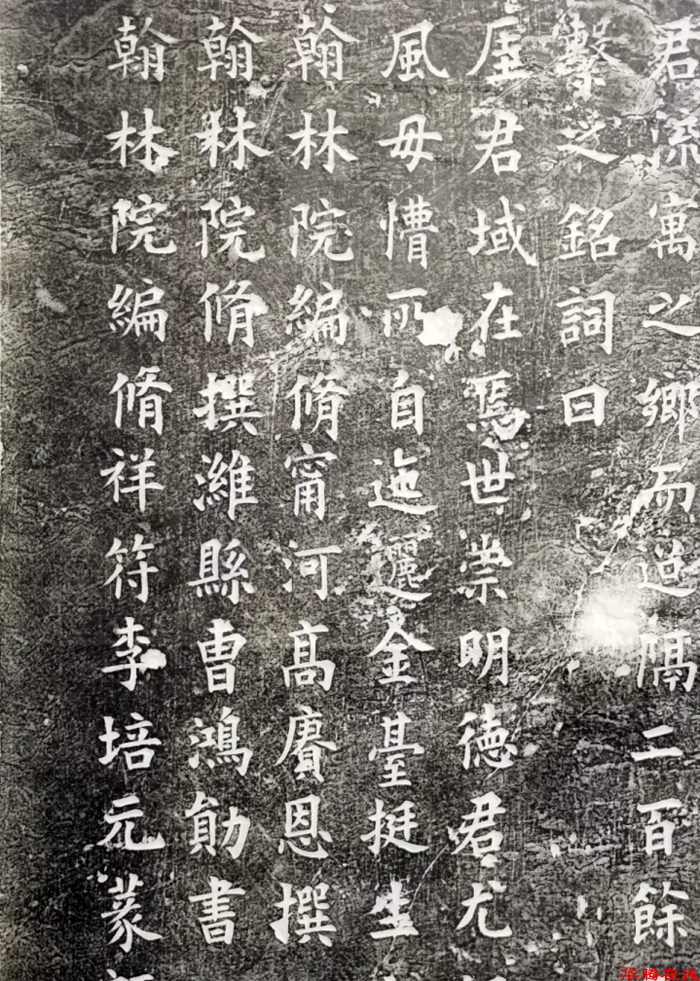 君流寓之鄉而隔二百餘
繫之銘詞曰
君域在焉世崇明德君尤
風毋慒所自迤邐金臺挺生
翰林院編脩甯河高賡恩撰
翰林院脩撰濰縣曹鴻勛書
翰林院編脩祥符李培元篆
华腾在线